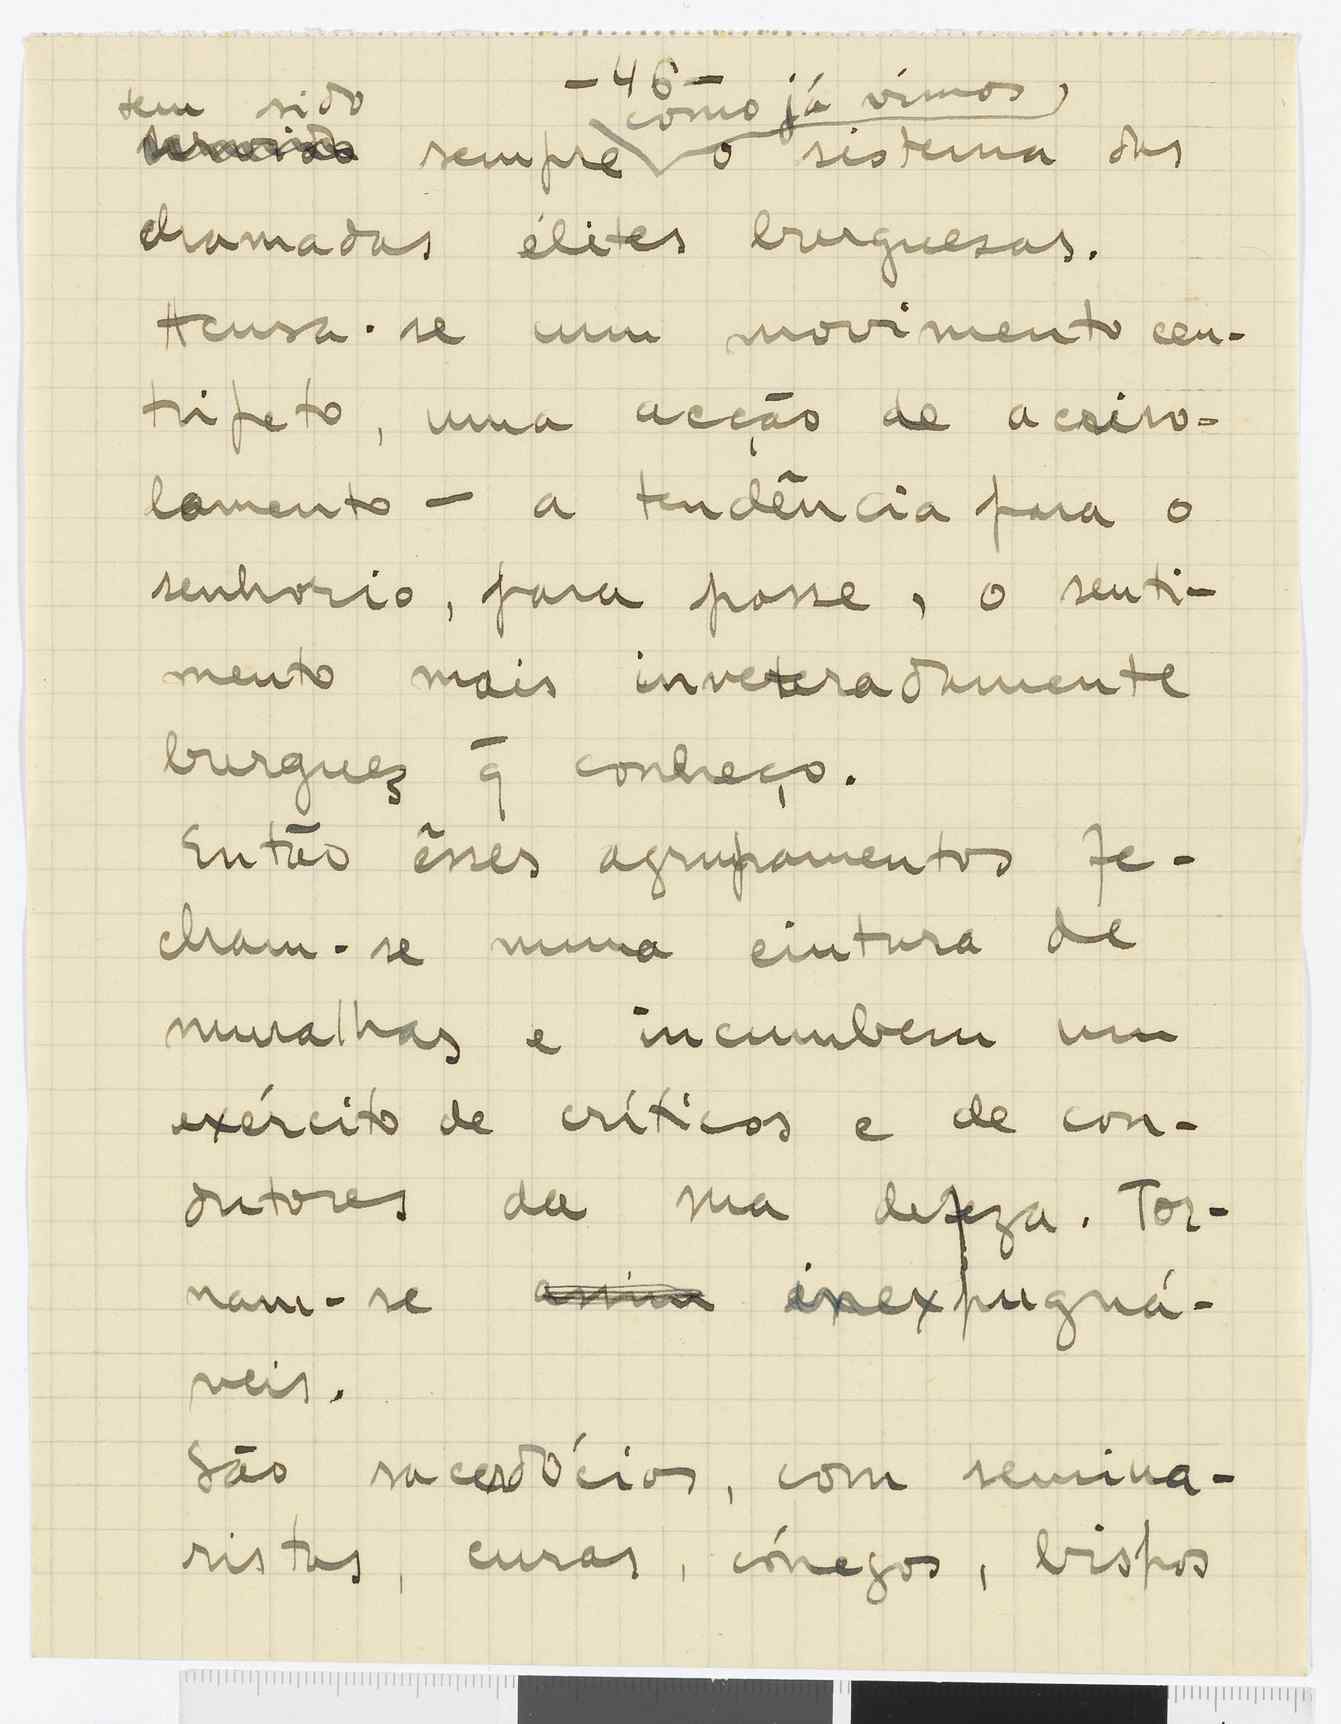 -46-
tem sido como já vimos,
sempre o sistema das
chamadas élites burguesas.
Acusa-se um movimento cen-
trípeto, uma acção de acriso-
lamento — a tendência para o
senhorio, para posse, o senti-
mento mais inveteradamente
burguez q̄ conheço.
Então êsses agrupamentos fe-
cham-se numa cintura de
muralhas e incumbem um
exército de críticos e de con-
dutores da sua defeza. Tor-
nam-se assim inexpugná-
veis.
São sacerdócios, com semina-
ristas, curas, cónegos, bispos